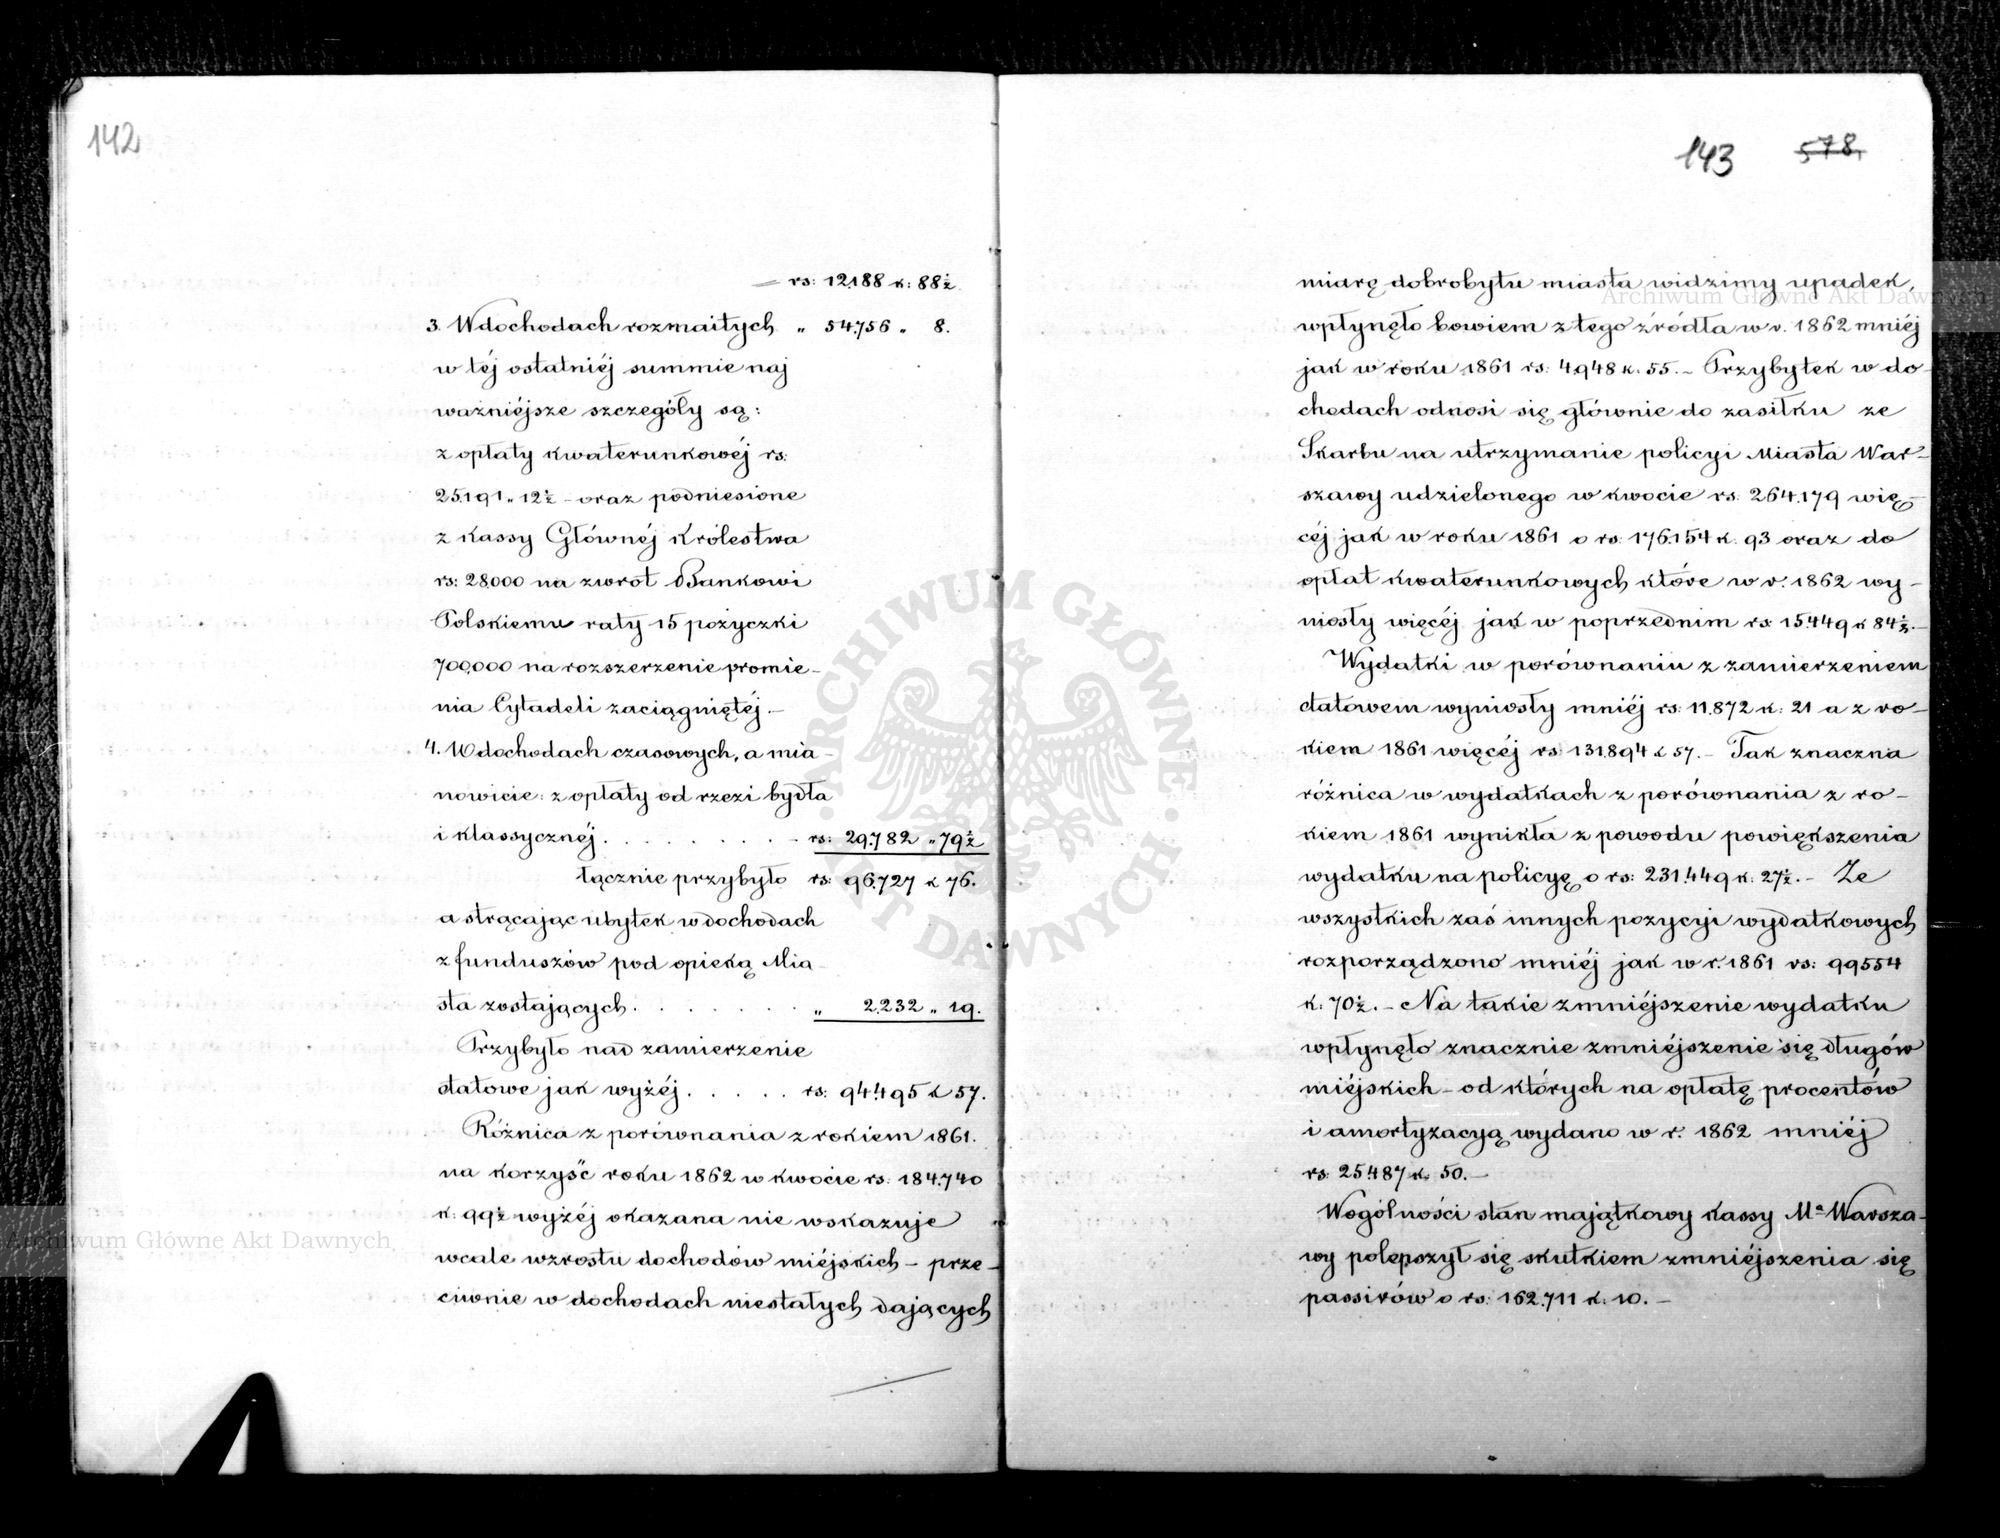 142
rs: 12.188 k: 88½
3. W dochodach rozmaitych „ 54.756 „ 8.
w téj ostatniéj summie naj
ważniéjsze szczegóły są:
z opłaty kwaterunkowéj rs:
25.191 „ 12½ – oraz podniesione
z kassy Głównéj Królestwa
rs: 28.000 na zwrot Bankowi
Polskiemu raty 15 pożyczki
700,000 na rozszerzenie promie-
nia Cytadeli zaciągniętéj. –
4. W dochodach czasowych, a mia-
nowicie: z opłaty od rzezi bydła
i klassycznéj . . . . . . . . rs: 29.782 „ 79½
łącznie przybyło rs: 96.727 k 76.
a strącając ubytek w dochodach
z funduszów pod opieką Mia-
sta zostających . . . . . . . „ 2.232 „ 19.
Przybyło nad zamierzenie
etatowe jak wyżéj . . . . . rs: 94.495 k 57.
Różnica z porównania z rokiem 1861.
na korzyść roku 1862 w kwocie rs: 184.740
k: 99½ wyżéj okazana nie wskazuje
wcale wzrostu dochodów miéjskich – prze-
ciwnie w dochodach niestałych dających
143 578.
miarę dobrobytu miasta widzimy upadek,
wpłynęło bowiem z tego źródła w r. 1862 mniéj
jak w roku 1861 rs: 4.948 k. 55. – Przybytek w do-
chodach odnosi się głównie do zasiłku ze
Skarbu na utrzymanie policyi Miasta War-
szawy udzielonego w kwocie rs: 264.179 wię-
céj jak w roku 1861 o rs: 176.154 k. 93 oraz do
opłat kwaterunkowych które w r. 1862 wy-
niosły więcéj jak w poprzednim rs: 15.449 k 84½. –
Wydatki w porównaniu z zamierzeniem
etatowem wyniosły mniéj rs: 11.872 k: 21 a z ro-
kiem 1861 więcéj rs: 131.894 k 57. – Tak znaczna
różnica w wydatkach z porównania z ro-
kiem 1861 wynikła z powodu powiększenia
wydatku na policyę o rs: 231.449 k: 27½. – Ze
wszystkich zaś innych pozycyi wydatkowych
rozporządzono mniéj jak w r. 1861 rs: 99554
k: 70½. – Na takie zmniéjszenie wydatku
wpłynęło znacznie zmniéjszenie się długów
miéjskich – od których na opłatę procentów
i amortyzacyą wydano w r. 1862 mniéj
rs: 25.487 k. 50. –
Wogólności stan majątkowy kassy Mª Warsza-
wy polepszył się skutkiem zmniéjszenia się
passivów o rs: 162.711 k: 10. –
ARCHIWUM GŁÓWNE
AKT DAWNYCH
Archiwum Główne Akt Dawnych
Archiwum Główne Akt Dawnych